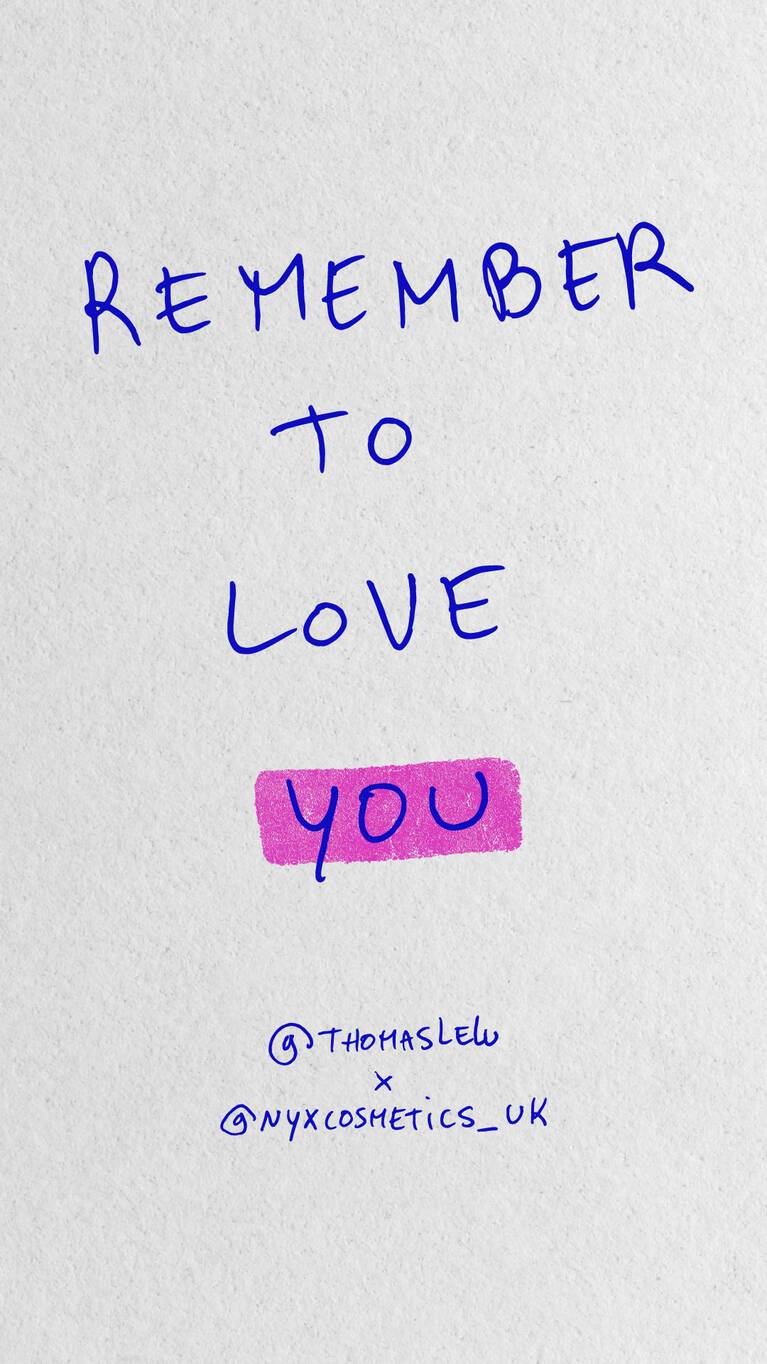 REMEMBER
TO
LOVE
YOU
@THOMASLELU
x
@NYXCOSMETICS_UK